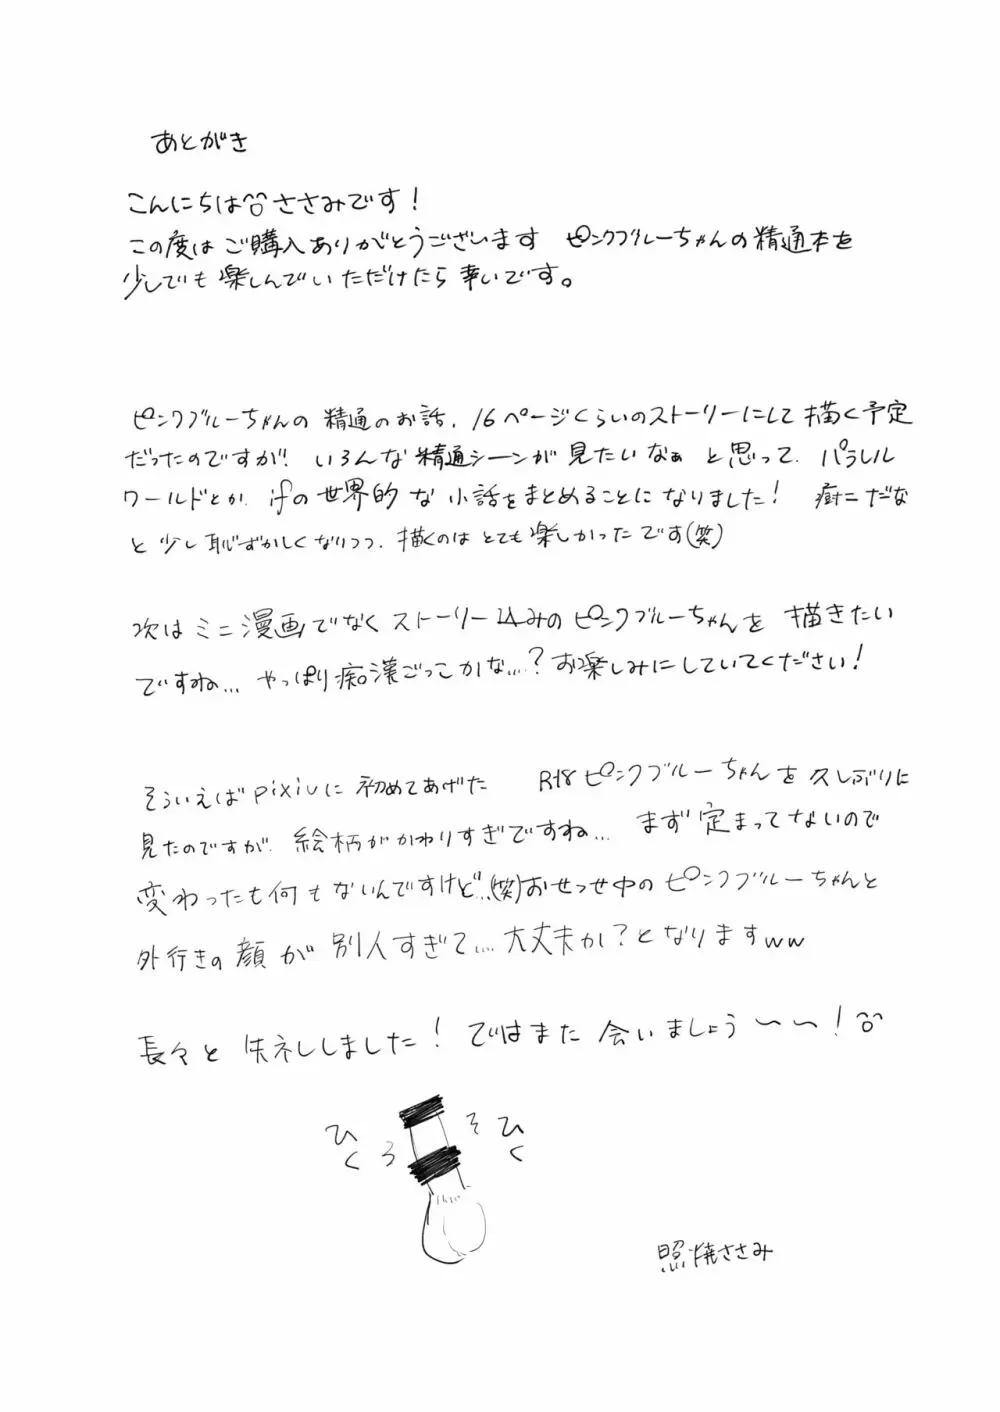 あとがき
こんにちは ささみです！
この度はご購入ありがとうございます ピンクブルーちゃんの精通本を
少しでも楽しんでいただけたら幸いです。
ピンクブルーちゃんの精通のお話、16ページくらいのストーリーにして描く予定
だったのですが、いろんな精通シーンが見たいなぁと思って、パラレル
ワールドとか、ifの世界的な小話をまとめることになりました！ 厨二だな
と少し恥ずかしくなりつつ、描くのはとても楽しかったです(笑)
次はミニ漫画でなくストーリー込みのピンクブルーちゃんを描きたい
ですね… やっぱり痴漢ごっこかな…？お楽しみにしていてください！
そういえばpixivに初めてあげた R18ピンクブルーちゃんを久しぶりに
見たのですが、絵柄がかわりすぎですね… まず定まってないので
変わったも何もないんですけど…(笑)おせっせ中のピンクブルーちゃんと
外行きの顔が別人すぎて…大丈夫か？となりますww
長々と失礼しました！ではまた会いましょう〜〜！
ひく
ろ
そ
ひく
照焼ささみ